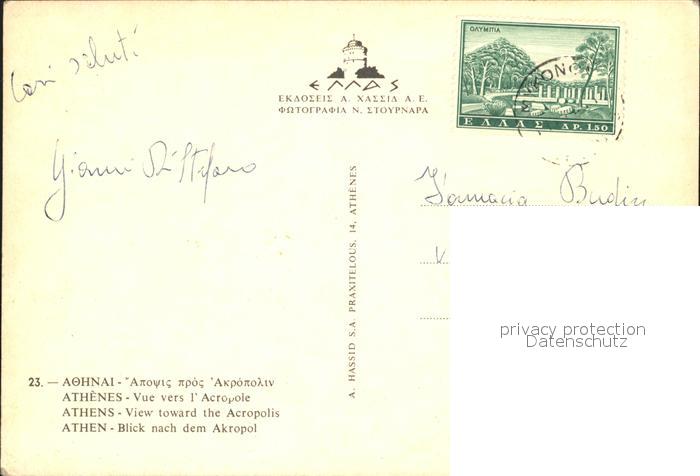 Cari saluti
ΕΛΛΑΣ
ΕΚΔΟΣΕΙΣ Α. ΧΑΣΣΙΔ Α.Ε.
ΦΩΤΟΓΡΑΦΙΑ Ν. ΣΤΟΥΡΝΑΡΑ
ΟΛΥΜΠΙΑ
ΕΛΛΑΣ ΔΡ. 1.50
Gianni Di Stefano
A. HASSID S.A. PRAXITELOUS, 14, ATHÈNES
Farmacia Budin
privacy protection
Datenschutz
23. — ΑΘΗΝΑΙ - Ἄποψις πρὸς Ἀκρόπολιν
ATHÈNES - Vue vers l' Acropole
ATHENS - View toward the Acropolis
ATHEN - Blick nach dem Akropol